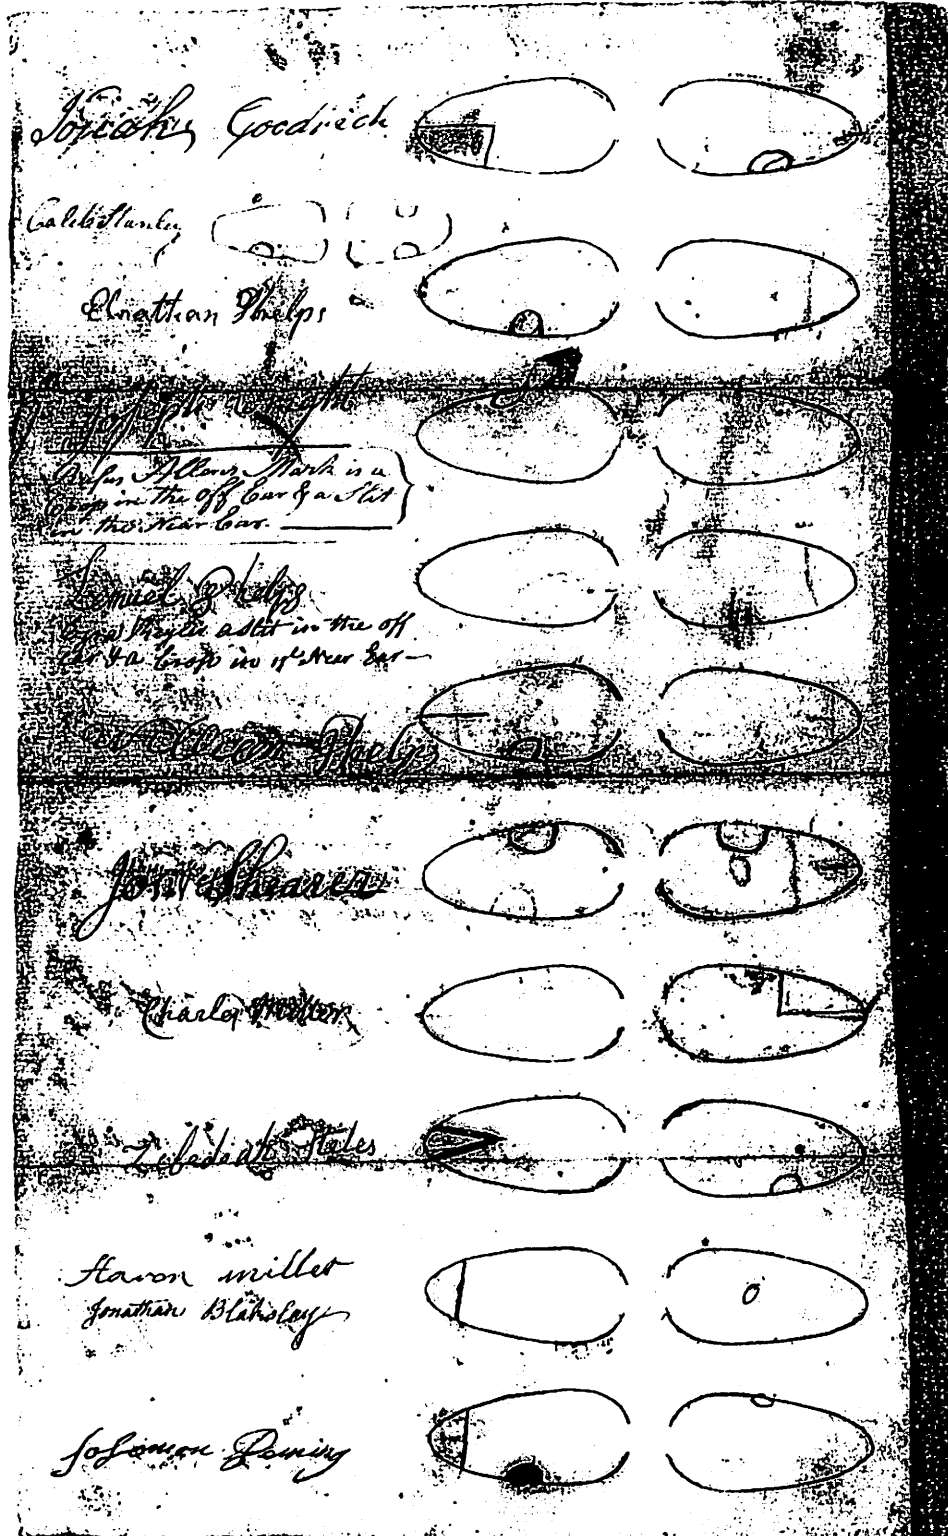 Josiah Goodrich
Caleb Stanley
Elnathan Phelps
Joseph Wright
Rufus Allens Mark is a
Crop in the off Ear & a Slit
in the Near Ear.
Lemuel Phelps
a slit in the off
Ear & a Crop in ye Near Ear
William Phelps
Jon Shearer
Charles Miller
Zebadiah Stiles
Aaron miller
Jonathan Blakslay
Solomon Deming